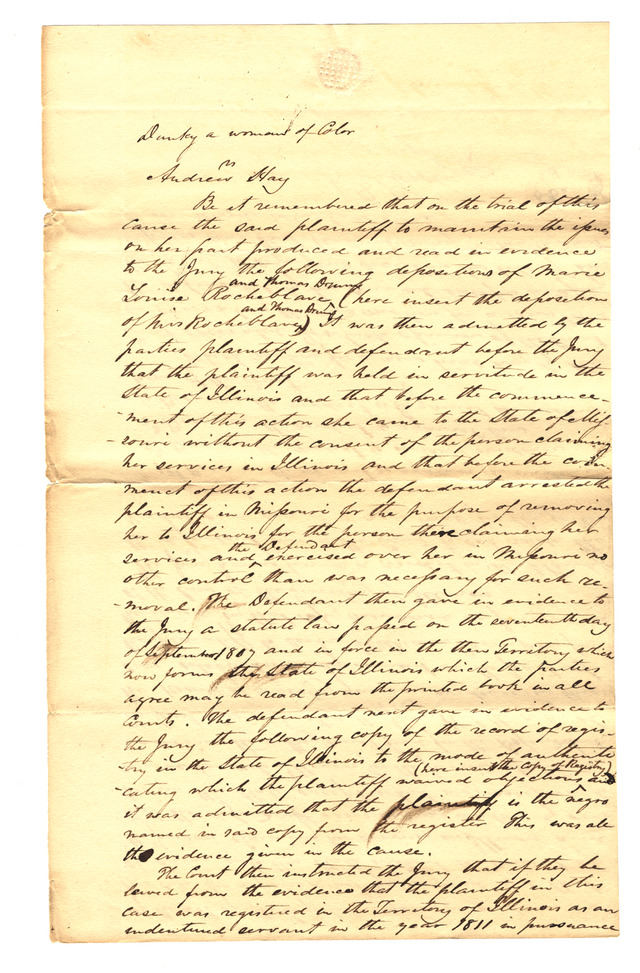 Dunky a woman of Color
vs
Andrew Hay
Be it remembered that on the trial of this
cause the said plaintiff to maintain the issues
on her part produced and read in evidence
to the Jury the following depositions of Marie
and Thomas Downs
Louise Rocheblave (here insert the deposition
and Thomas Downs
of Mrs Rocheblave) It was then admitted by the
parties plaintiff and defendant before the Jury
that the plaintiff was held in servitude in the
State of Illinois and that before the commence-
-ment of this action she came to the State of Mis-
-souri without the consent of the person claiming
her services in Illinois and that before the com
menct of this action the defendant arrested the
plaintiff in Missouri for the purpose of removing
her to Illinois for the person there claiming her
the Defendant
services and exercised over her in Missouri no
other control than was necessary for such re-
-moval. The Defendant then gave in evidence to
the Jury a statute law passed on the seventeenth day
of September 1807 and in force in the then Territory which
now forms the State of Illinois which the parties
agree may be read from the printed book in all
Courts. The defendant next gave in evidence to
the Jury the following copy of the record of regis-
-try in the State of Illinois to the mode of authenti
(here insert the Copy of Registry)
-cating which the plaintiff waived objections and
it was admitted that the plaintiff is the negro
named in said copy from the register This was all
the evidence given in the cause.
The Court then instructed the Jury that if they be
leived from the evidence that the plaintiff in this
case was registered in the Territory of Illinois as an
indentured servant in the year 1811 in pursuance